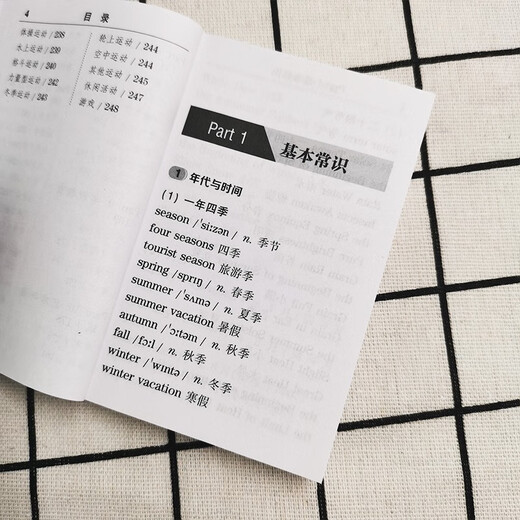 4 目 录
体操运动 / 238
水上运动 / 239
格斗运动 / 240
力量型运动 / 242
冬季运动 / 243
轮上运动 / 244
空中运动 / 244
其他运动 / 245
休闲活动 / 247
游戏 / 248
Part 1 基本常识
1 年代与时间
（1）一年四季
season /ˈsiːzən / n. 季节
four seasons 四季
tourist season 旅游季
spring /sprɪŋ / n. 春季
summer /ˈsʌmə / n. 夏季
summer vacation 暑假
autumn /ˈɔːtəm / n. 秋季
fall /fɔːl / n. 秋季
winter /ˈwɪntə / n. 冬季
winter vacation 寒假